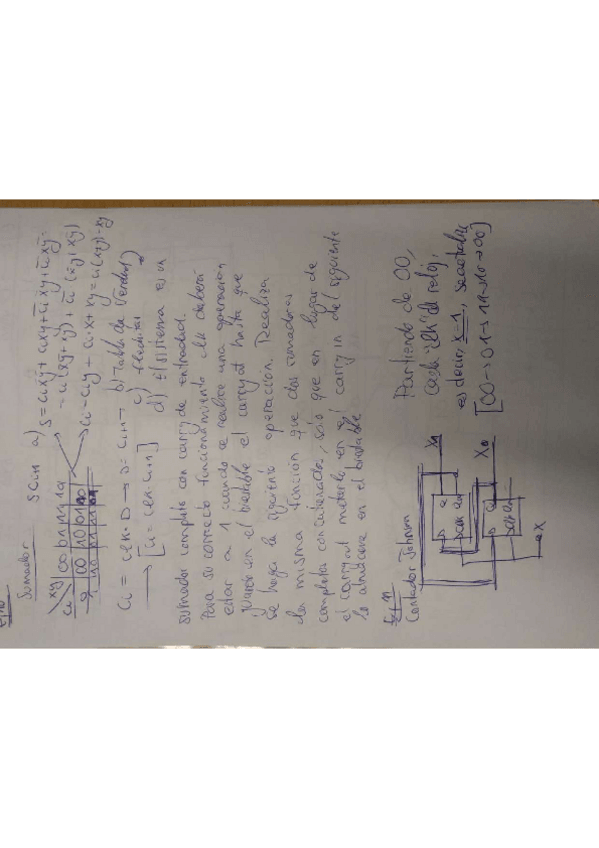 Ej 10
Sumador
S Ci+1
a)
xy
Ci
00 01 11 10
0 00 10 01 10
1 10 01 11 01
S = Ci x̄ȳ + Ci xy + C̄i x̄y + C̄i xȳ =
= Ci (x̄ȳ + xy) + C̄i (x̄y + xȳ)
Ci = Ciy + Ci·x + xy = Ci(x+y) + xy
Ci = CLK·D → D = Ci+1 →
→ [Ci = CLK·Ci+1]
b) Tabla de verdad
c) Efectivas
d) El sistema es un
sumador completo con carry de entrada.
Para su correcto funcionamiento clk deberá
estar a 1 cuando se realice una operación
y en el biestable el carryout hasta que
se haga la siguiente operación. Realiza
la misma función que dos sumadores
completos concatenados, solo que en lugar de
el carryout meterlo en el carry in del siguiente
lo almacena en el biestable
Ej 11
Contador Johnson
X1
D Q
CLK
X0
D Q
CLK
X
Partiendo de 00,
cada clk de reloj,
es decir, x=1,
[00→01→11→10→00]